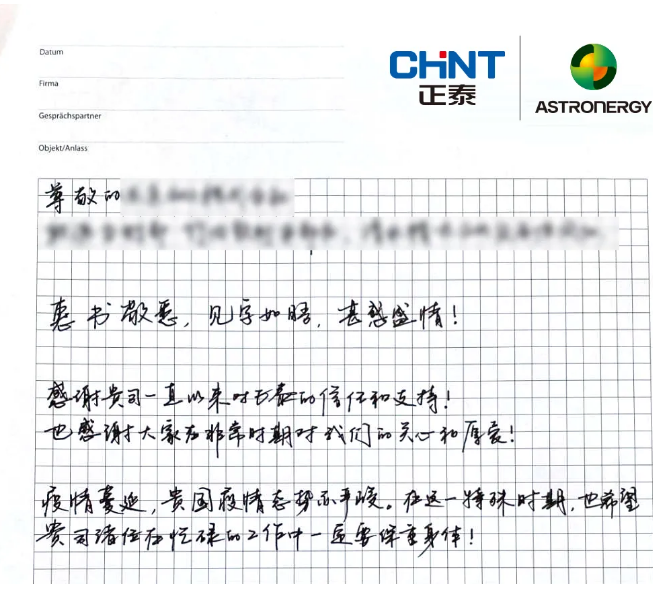 CHNT
正泰
ASTRONERGY
Datum
Firma
Gesprächspartner
Objekt/Anlass
尊敬的
惠书敬悉，见字如晤，甚感盛情！
感谢贵司一直以来对正泰的信任和支持！
也感谢大家在非常时期对我们的关心和厚爱！
疫情蔓延，贵国疫情态势亦严峻。在这一特殊时期，也希望
贵司诸位在忙碌的工作中一定要保重身体！